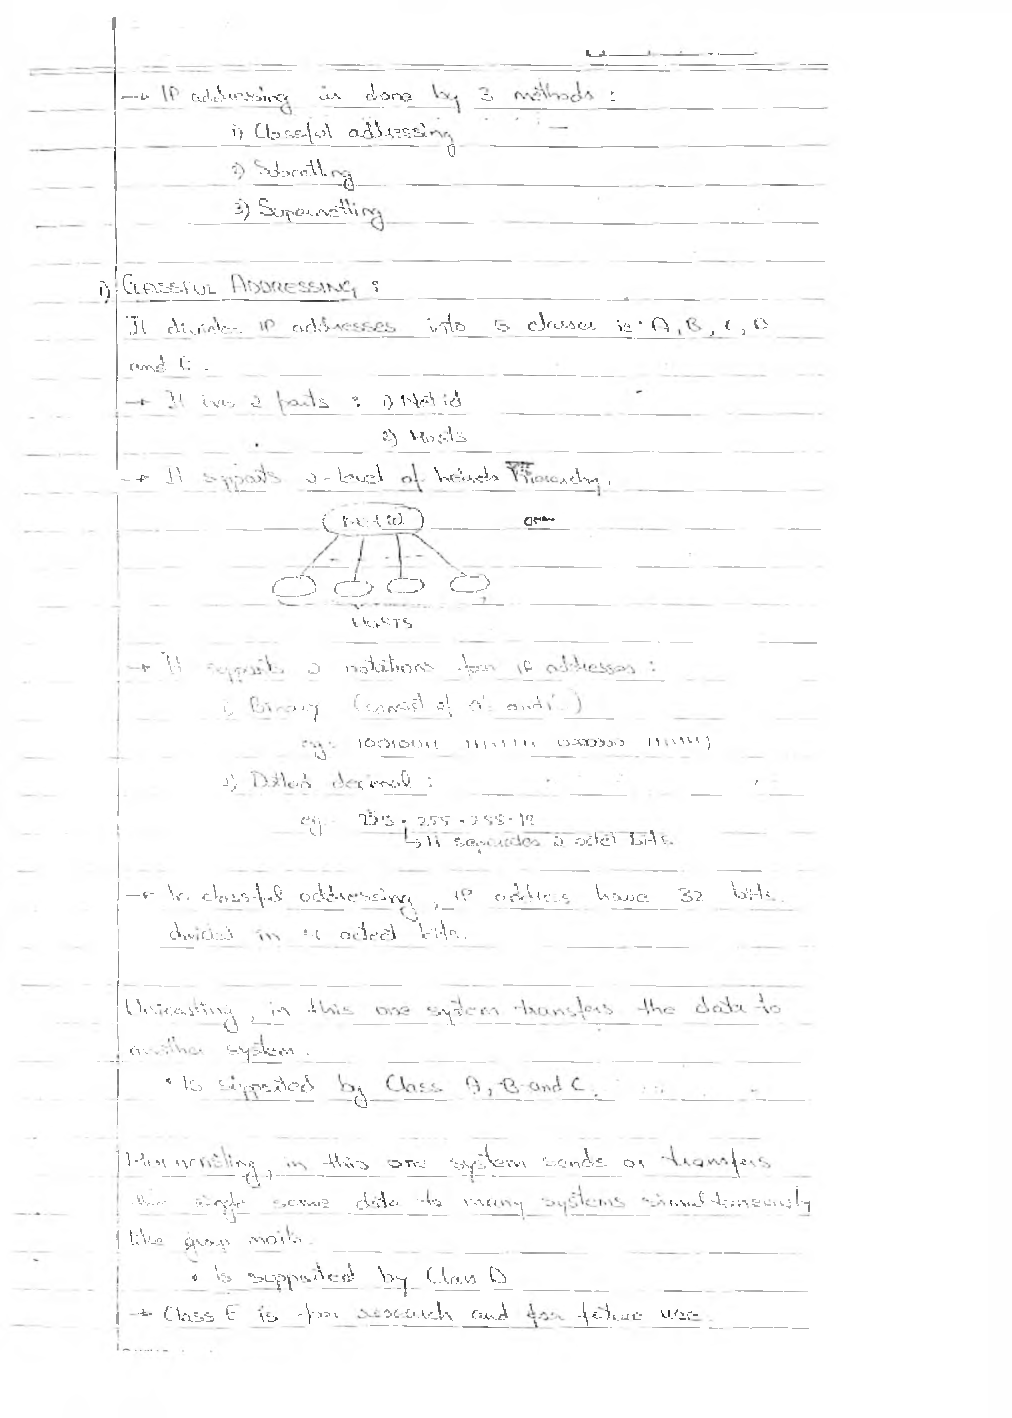 → IP addressing is done by 3 methods :
1) Classful addressing
2) Subnetting
3) Supernetting
1) CLASSFUL ADDRESSING :
It divides IP addresses into 5 classes ie: A, B, C, D
and E.
→ It has 2 parts : 1) Net id
2) Hosts
→ It supports 2-level of Hierarchy.
(Net id)
HOSTS
→ It supports 2 notations for IP addresses :
1) Binary (consist of 0's and 1's)
eg:- 11111111 11111111
2) Dotted decimal :
eg:- 255.255.12
↳ It separates 2 octet bits.
→ In classful addressing, IP address have 32 bits
divided in 4 octed bits.
Unicasting, in this one system transfers the data to
another system.
• Is supported by Class A, B and C.
in this one system sends or transfers
single same data to many systems simultaneously
like group mails.
• is supported by Class D
→ Class E is for research and for future use.